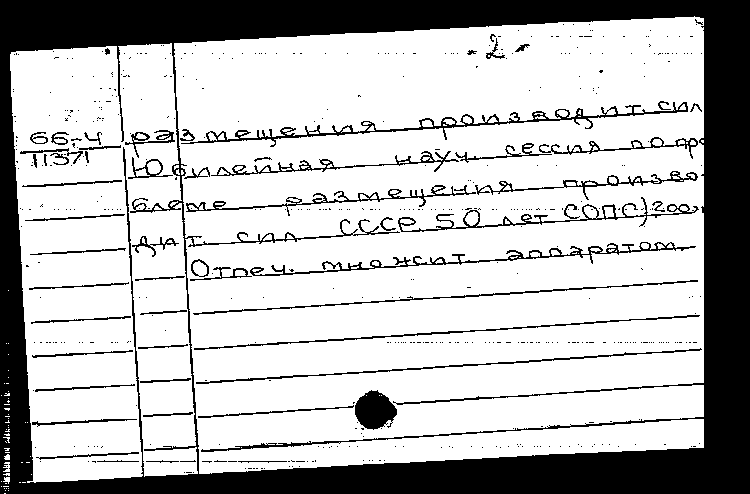 -2-
66-4 размещения производит. сил
11371 Юбилейная науч. сессия по про
блеме размещения произво-
дит. сил СССР. 50 лет СОПС) 200
Отпеч. множит. аппаратом.